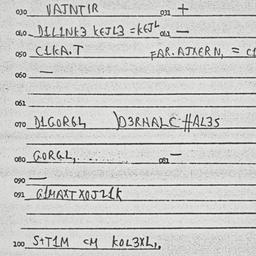 030 VAJNTIR 031 +
040 D1L1NK3 KEJL3 = KEJL 041 —
050 C1KA.T FAR. AJXERN, = C1
060 —
061
070 D1GORGL D3RHALC HAL3S
080 GORGL, ........ 081 —
090 —
091 G1MAXT XOJ21K
100 S+T1M CM KOL3XL,,